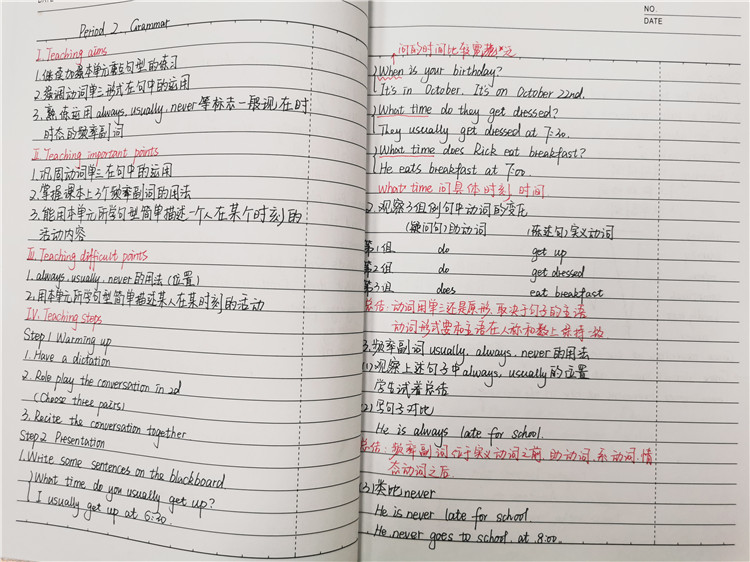 DATE
Period 2 Grammar
I. Teaching aims
1.继续加强本单元重点句型的练习
2.强调动词单三形式在句中的运用
3.熟练运用always, usually, never等标志一般现在时
时态的频率副词
II. Teaching important points
1.巩固动词单三在句中的运用
2.掌握课本上3个频率副词的用法
3.能用本单元所学句型简单描述一个人在某个时刻的
活动内容
III. Teaching difficult points
1. always, usually, never的用法(位置)
2.用本单元所学句型简单描述某人在某时刻的活动
IV. Teaching steps
Step 1 Warming up
1. Have a dictation
2. Role play the conversation in 2d
(Choose three pairs)
3. Recite the conversation together
Step 2 Presentation
1. Write some sentences on the blackboard
What time do you usually get up?
I usually get up at 6:30.
NO.
DATE
问的时间比较宽泛
When is your birthday?
It's in October. It's on October 22nd.
What time do they get dressed?
They usually get dressed at 7:20.
What time does Rick eat breakfast?
He eats breakfast at 7:00.
What time 问具体时刻 时间
2.观察3组例句中动词的变化
(疑问句)助动词 (陈述句)实义动词
第1组 do get up
第2组 do get dressed
第3组 does eat breakfast
总结:动词用单三还是原形,取决于句子的主语
动词形式要和主语在人称和数上保持一致
3.频率副词usually, always, never的用法
(1)观察上述句子中always, usually的位置
学生试着总结
(2)写句子对比
He is always late for school.
总结:频率副词位于实义动词之前,助动词,系动词,情
态动词之后.
(3)类比never
He is never late for school
He never goes to school at 8:00.